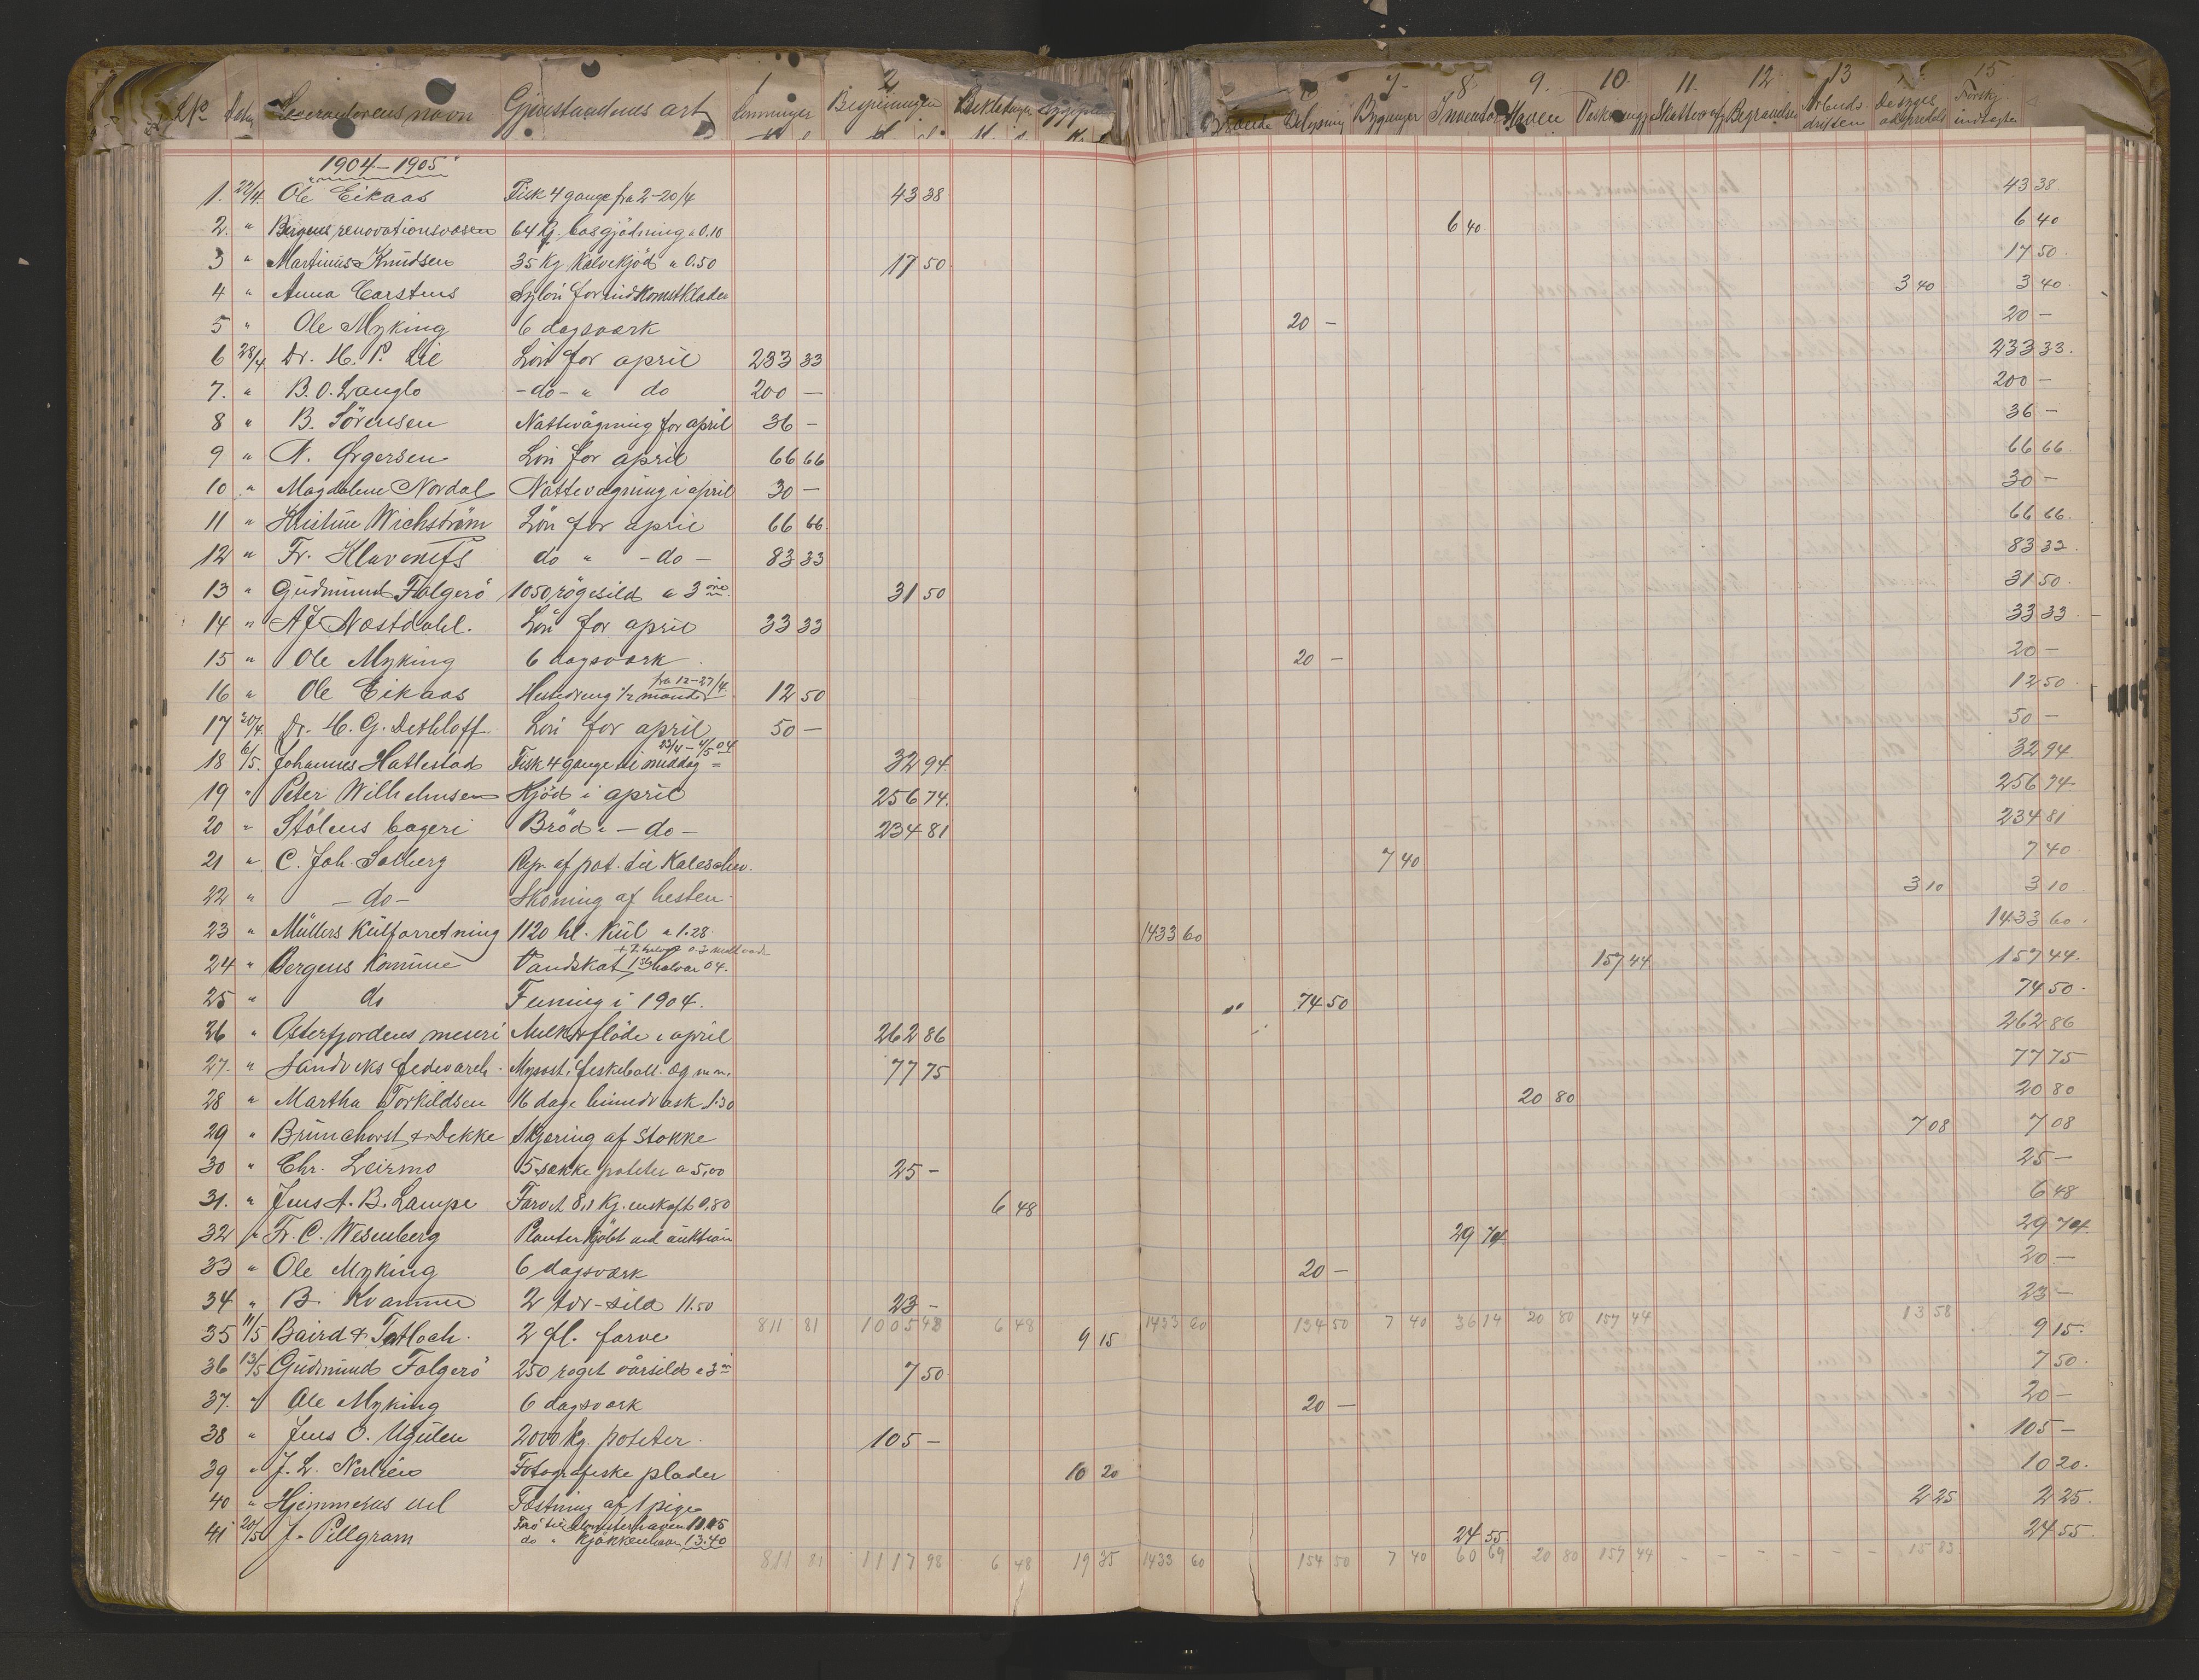 1 2 7. 8. 9. 10. 11. 12 13 15
No Leverandørens navn Gjenstandens art Lønninger Bespisningen Brænde Belysning Bygninger Inventar Haven Vask Skatter Begravelser Arbeidsdriften Forskj. indtægter
1904–1905
1. 22/4 Ole Eikaas Fisk 4 gange fra 2–20/4 43 38 43 38.
2. " Bergens renovationsvæsen 64 basgjødning a 0.10 6 40. 6 40
3 " Martinus Knudsen 35 Kg Kalvekjød a 0.50 17 50 17 50.
4 " Anna Carstens Syløn for indkomstklæder 3 40 3 40
5 " Ole Myking 6 dagsværk 20 – 20 –
6 28/4 Dr. H. P. Lie Løn for april 233 33 233 33.
7. " B. O. Langlo – do – " do 200 – 200 –
8 " B. Sörensen Nattevågning for april 36 – 36 –
9 " N. Ørgersen Løn for april 66 66 66 66.
10 " Magdalene Nordal Nattevagning i april 30 – 30 –
11 " Kristine Wichström Løn for april 66 66. 66 66.
12 " Fr. Klaveness do " – do – 83 33 83 33.
13 " Gudmund Falgerö 1050 røgesild a 3 øre 31 50 31 50.
14 " A J Næstdahl. Løn for april 33 33 33 33.
15 " Ole Myking 6 dagsværk 20 – 20 –
16 " Ole Eikaas Hestedreng 1/2 maaned fra 12–27/4 12 50 12 50.
17 30/4. Dr. H. G. Dethloff Løn for april 50 – 50 –
18 6/5. Johannes Hatlestad Fisk 4 gange til middag 23/4–4/5 04 32 94. 32 94
19 " Peter Wilhelmsen Kjød i april 256 74. 256 74
20 " Stölens bageri Bröd " – do – 234 81 234 81
21 " C. Joh. Solberg Rep. af pat. til Kaleschev. 7 40 7 40
22 " – do – Skoning af hesten 3 10 3 10
23 " Müllers Kulforretning 1120 hl. Kul a 1.28 1433 60 1433 60.
24 " Bergens Kommune Vandskat 1ste halvår 04. 157 44 157 44.
25 " do Feining i 1904. 74 50 74 50.
26 " Osterfjordens meieri Melk & fløde i april 262 86 262 86
27 " Sandviks fedevareh. Mysost, fiskeboll. og m.m. 77 75 77 75
28 " Martha Torkildsen 16 dage linnedvask 1.30 20 80 20 80
29 " Brunchorst & Dekke Skjæring af stokke 7 08 7 08
30 " Chr. Leirmo 5 sække poteter a 5,00 25 – 25 –
31. " Jens A. B. Lampe Farvet 8,1 Kg. enskaft 0,80 6 48 6 48
32 " Fr. C. Wesenberg Planter kjøbt ved auktion 29 74. 29 74.
33 " Ole Myking 6 dagsværk 20 – 20 –
34 " B. Kvamme 2 tdr. sild 11.50 23 – 23 –
811 81 1005 48 6 48 1433 60 134 50 7 40 36 14 20 80 157 44 13 58
35 11/5 Baird & Tatlock. 2 fl. farve 9 15 9 15.
36 13/5 Gudmund Falgerö 250 røget vårsild a 3 7 50 7 50.
37. " Ole Myking 6 dagsværk 20 – 20 –
38 " Jens O. Ugulen 2000 Kg. poteter 105 – 105 –
39 " J. L. Nerlien Fotografiske plader 10 20 10 20.
40 " Hjemmenes vel Fæstning af 1 pige 2 25 2 25.
41 20/5 J. Pillgram Frø til blomsterhaven 11.15 24 55 24 55.
do " Kjøkkenhaven 13.40
811 81 1117 98 6 48 19 35 1433 60 154 50 7 40 60 69 20 80 157 44 – – – – – – 15 83